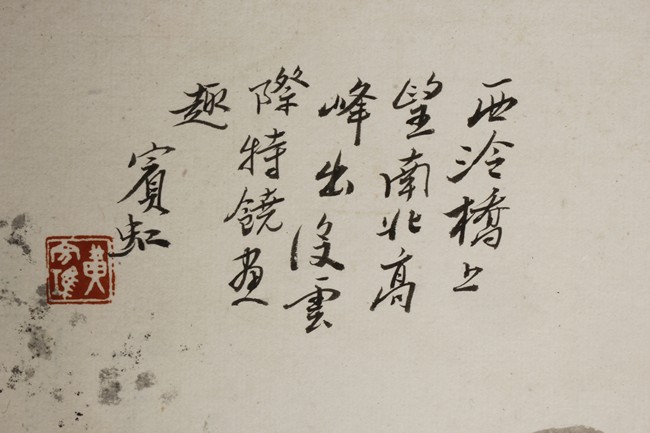 西泠橋上
望南北高
峰出没雲
際特饒畫
趣
賓虹
黄賓虹